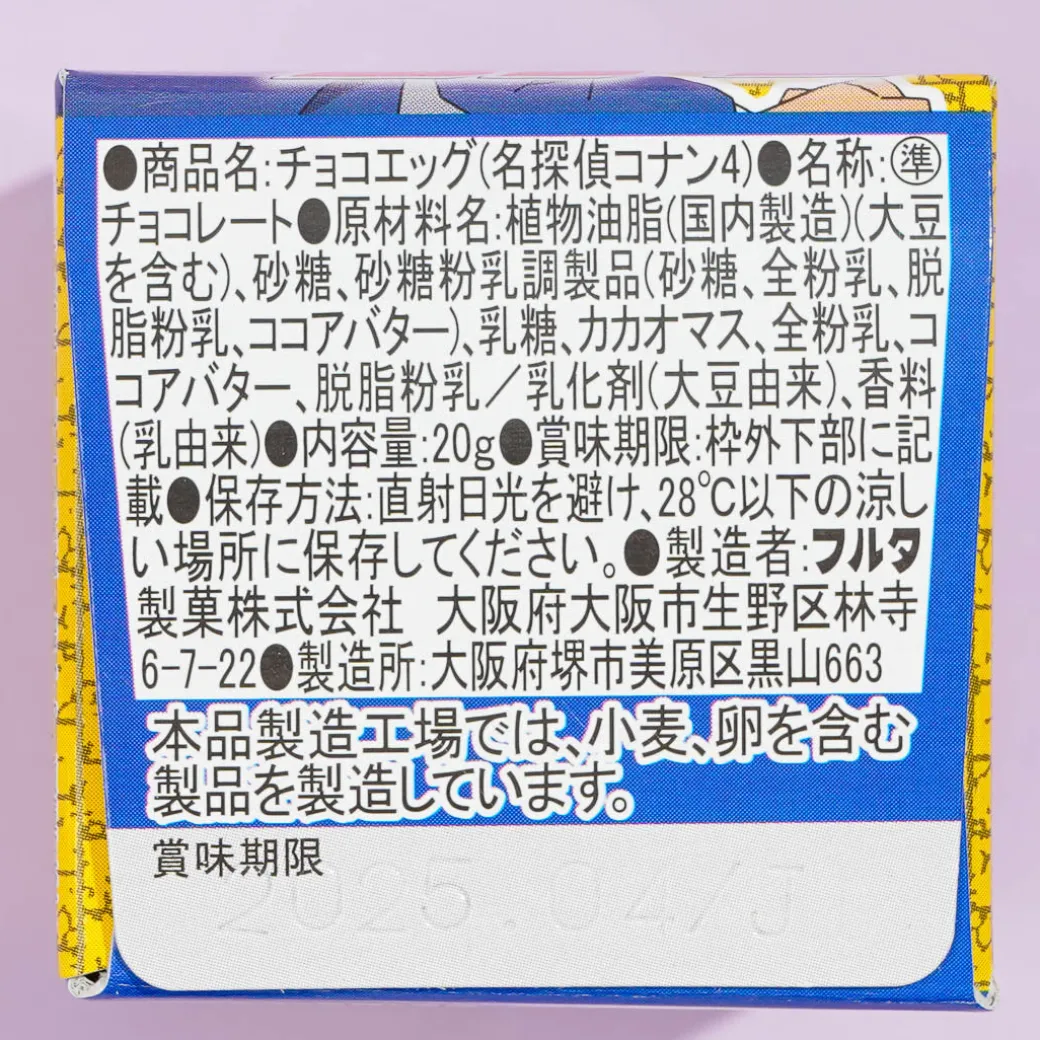 ●商品名:チョコエッグ(名探偵コナン4)●名称:㊜
チョコレート●原材料名:植物油脂(国内製造)(大豆
を含む)、砂糖、砂糖粉乳調製品(砂糖、全粉乳、脱
脂粉乳、ココアバター)、乳糖、カカオマス、全粉乳、コ
コアバター、脱脂粉乳／乳化剤(大豆由来)、香料
(乳由来)●内容量:20g●賞味期限:枠外下部に記
載●保存方法:直射日光を避け、28℃以下の涼し
い場所に保存してください。●製造者:フルタ
製菓株式会社 大阪府大阪市生野区林寺
6-7-22●製造所:大阪府堺市美原区黒山663
本品製造工場では、小麦、卵を含む
製品を製造しています。
賞味期限
2025 04/